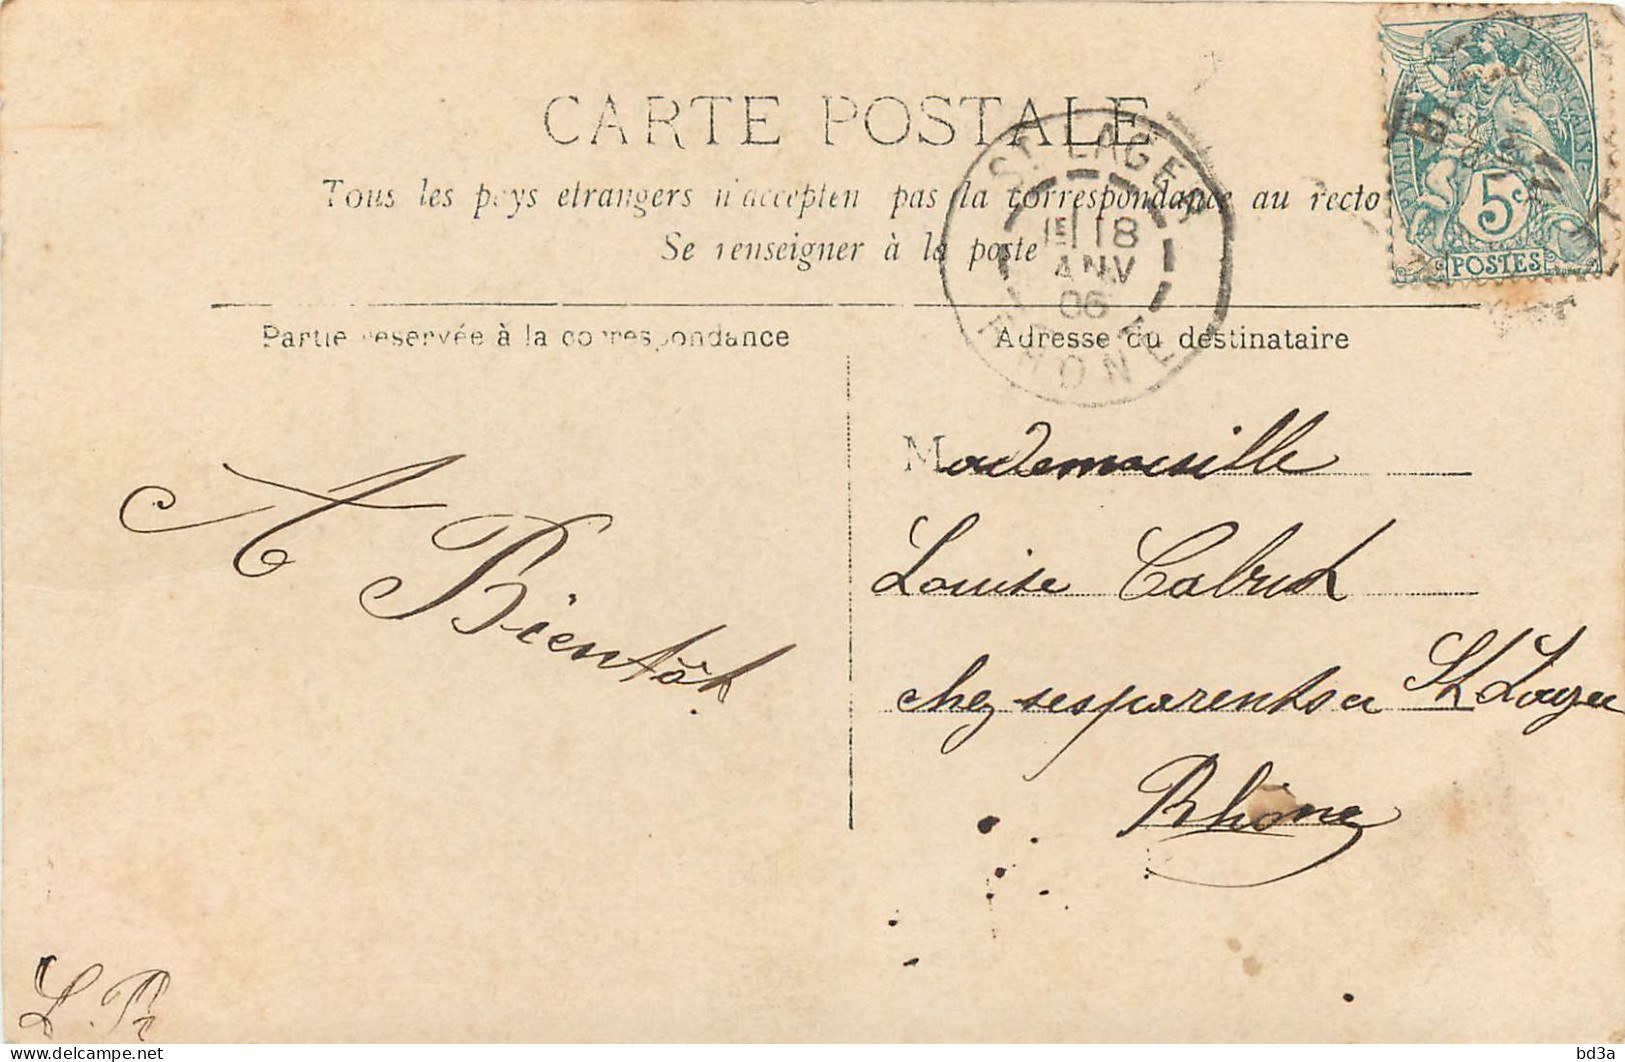 CARTE POSTALE
Tous les pays etrangers n'accepten pas la correspondance au recto
Se renseigner à la poste
ST LAGER
1E 18
ANV
06
RHONE
5c
POSTES
Partie reservée à la correspondance
Adresse du destinataire
A Bientôt.
Mademoiselle
Louise
chez ses parents a St Lager
Rhône
bd3a